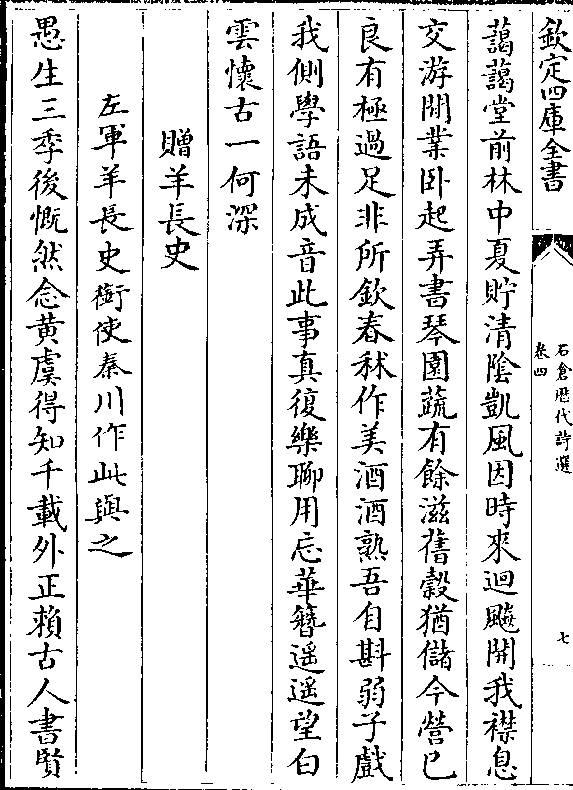 欽定四庫全書
石倉歷代詩選
卷四
七
藹藹堂前林中夏貯清隂凱風因時來迴飇開我襟息
交游閒業卧起弄書琴園蔬有餘滋舊榖猶儲今營已
良有極過足非所欽春秫作美酒酒熟吾自斟弱子戲
我側學語未成音此事真復樂聊用忘華簪遥遥望白
雲懷古一何深
贈羊長史
左軍羊長史銜使秦川作此與之
愚生三季後慨然念黄虞得知千載外正賴古人書賢